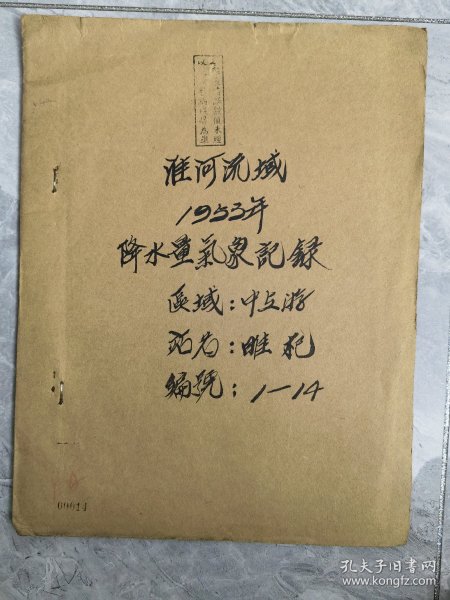 淮河流域
1953年
降水量氣象記録
區域：中上游
站名：睢杞
編號：1—14
00014
孔夫子旧书网
www.kongfz.com